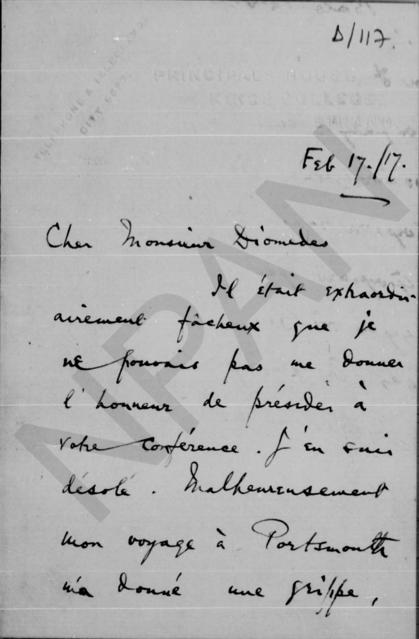 D/117.
PRINCIPAL'S HOUSE,
KING'S COLLEGE,
Feb 17./17.
Cher Monsieur Diomedes
Il était extraordin-
airement fâcheux que je
ne pouvais pas me donner
l'honneur de présider à
votre conférence. J'en suis
désolé. Malheureusement
mon voyage à Portsmouth
m'a donné une grippe,
NPAN